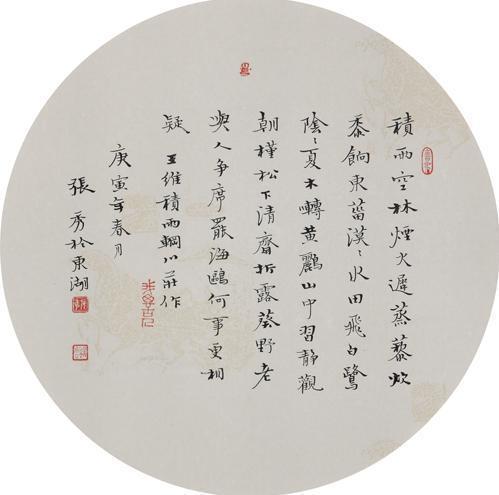 積雨空林煙火遲蒸藜炊
黍餉東菑漠〻水田飛白鷺
陰〻夏木囀黃鸝山中習靜觀
朝槿松下清齋折露葵野老
與人爭席罷海鷗何事更相
疑 王維積雨輞川莊作
庚寅年春月
張秀於東湖